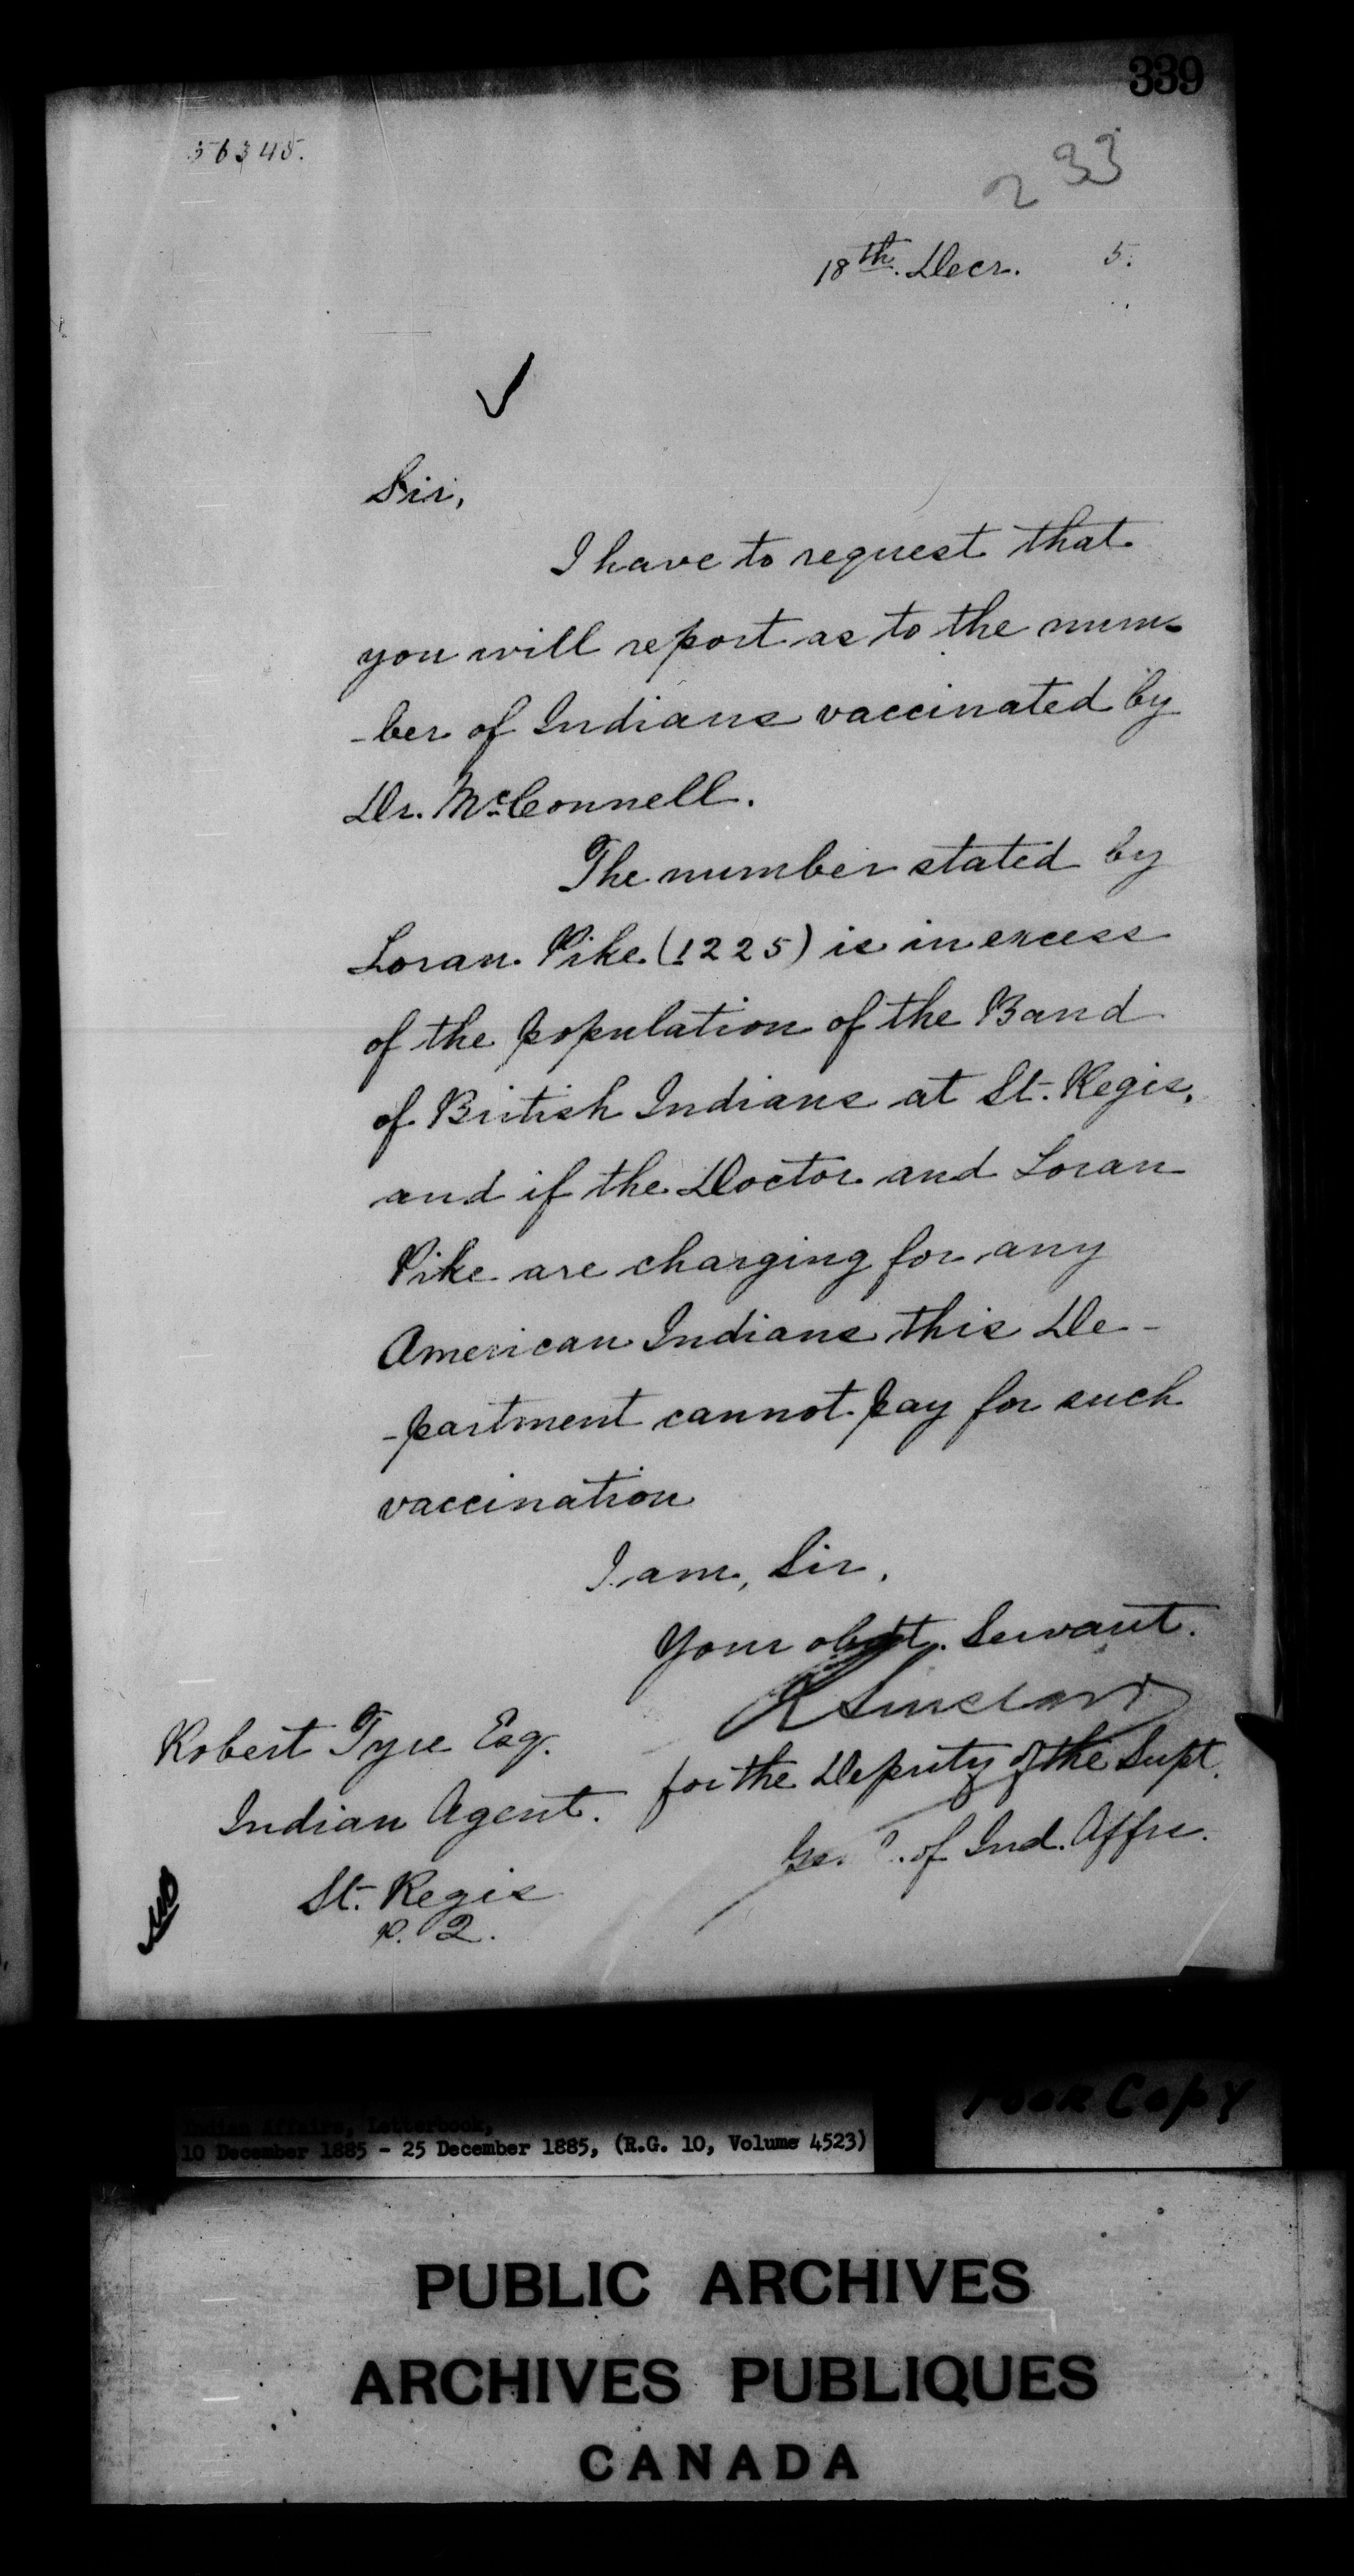 339
56345.
233
18th. Decr. 5.
Sir,
I have to request that
you will report as to the num-
-ber of Indians vaccinated by
Dr. McConnell.
The number stated by
Loran Pike (1225) is in excess
of the population of the Band
of British Indians at St. Regis,
and if the Doctor and Loran
Pike are charging for any
American Indians this De-
-partment cannot pay for such
vaccination
I am, Sir,
Your obdt. Servant.
R Sinclair
Robert Tyre Esq.
for the Deputy of the Supt.
Indian Agent.
of Ind. Affrs.
St. Regis
P. Q.
Indian Affairs, Letterbook,
10 December 1885 - 25 December 1885, (R.G. 10, Volume 4523)
Poor Copy
PUBLIC ARCHIVES
ARCHIVES PUBLIQUES
CANADA